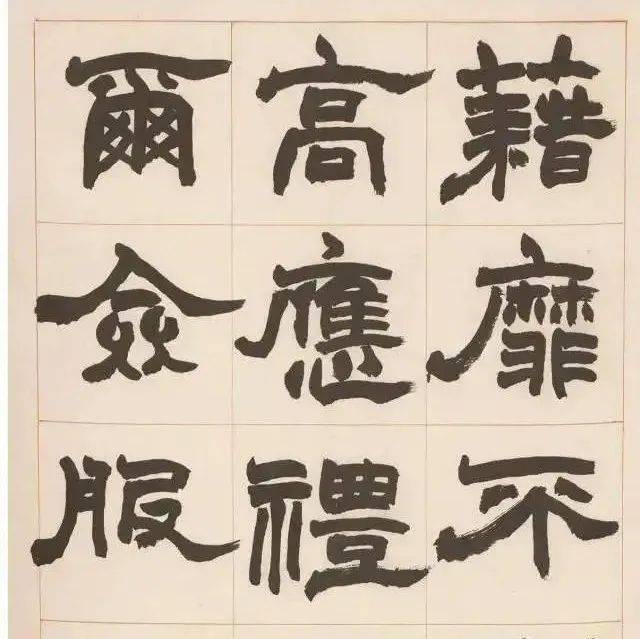 藉靡不
高應禮
爾僉服